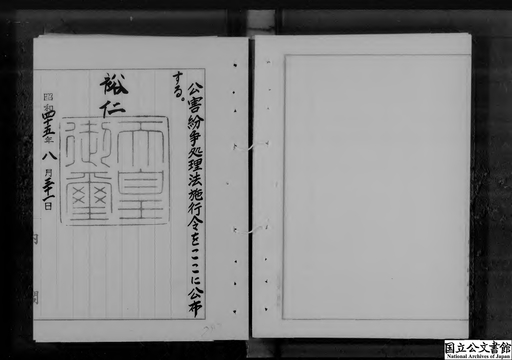 公害紛争処理法施行令をここに公布
する。
裕仁
天皇
御璽
昭和四十五年八月三十一日
内閣
国立公文書館
National Archives of Japan